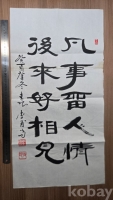 凡事留人情
後來好相見
kobay